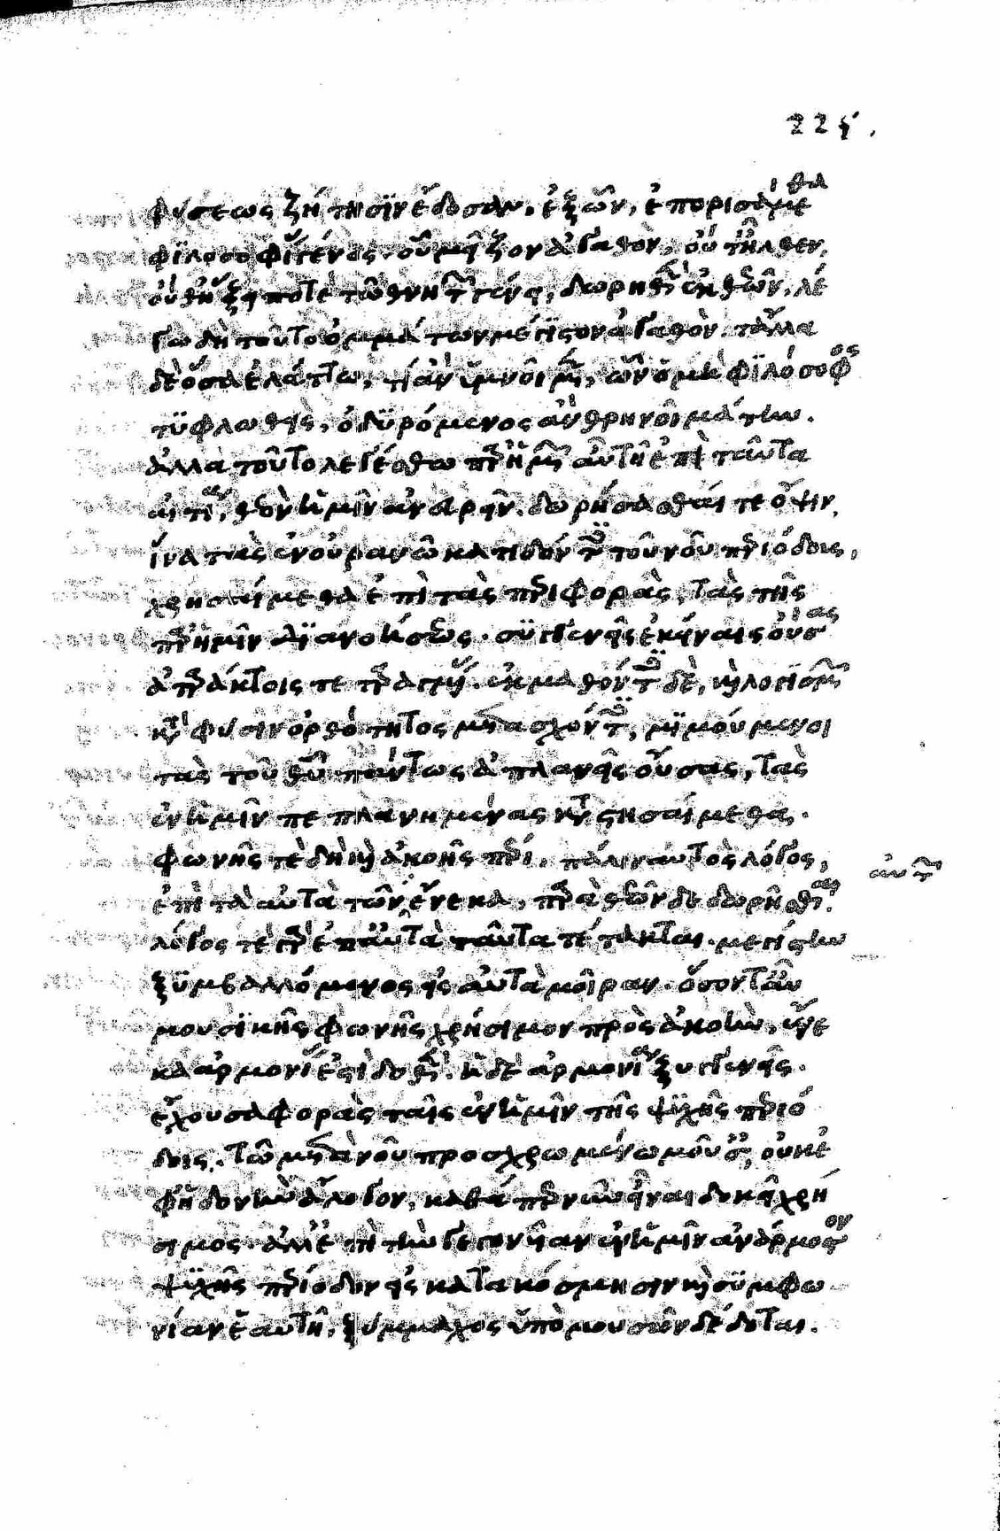 225.
φύσεως ζήτησιν ἔδοσαν. ἐξ ὧν, ἐπορισάμεθα
φϊλοσοφί γένος. οὗ μεῖζον ἀγαθὸν, οὔτ' ἦλθεν,
οὔθ' ἥξει ποτὲ τῶ θνητῶ γένει, δωρηθὲν ἐκ θεῶν. λέ
γω δὴ τοῦτο ὀμμάτων μέγιστον ἀγαθὸν. τἆλλα
δὲ ὅσα ἐλάττω, τί ἂν ὑμνοῖμεν, ὧν ὁ μὴ φϊλόσοφος
τϋφλωθεὶς, ὀδϋρόμενος ἂν θρηνοῖ μάτην.
ἀλλὰ τοῦτο λεγέσθω παρ' ἡμῶν αὕτη ἐπὶ ταῦτα
αἰτία, θεὸν ἡμῖν ἀνευρεῖν. δωρήσασθαί τε ὄψιν,
ἵνα τὰς ἐν οὐρανῶ κατιδόντες τοῦ νοῦ περιόδους,
χρησαίμεθα ἐπὶ τὰς περιφορὰς, τὰς τῆς
παρ' ἡμῖν διανοήσεως. συγγενεῖς ἐκείναις οὔσας
ἀταράκτοις τε ταραγμένας. ἐκμαθόντες δὲ, καὶ λογισμῶν
κατὰ φύσιν ὀρθότητος μετασχόντες, μϊμούμενοι
τὰς τοῦ θεοῦ πάντως ἀπλανεῖς οὔσας, τὰς
ἐν ἡμῖν πεπλανημένας καταστησαίμεθα.
φωνῆς τε δὴ καὶ ἀκοῆς περί, πάλιν αὐτὸς λόγος,
ἐπὶ τὰ αὐτὰ τῶν ἕνεκα, παρὰ θεῶν δεδωρῆσθαι.
λόγος τε γὰρ ἐπ' αὐτὰ ταῦτα τέτακται. μεγίστην
ξϋμβαλλόμενος εἰς αὐτὰ μοῖραν. ὅσον τ' αὖ
μουσϊκῆς φωνῆς χρήσιμον πρὸς ἀκοὴν, ἕνε
κα ἁρμονίας ἐστὶ δοθέν. ἡ δὲ ἁρμονία ξυγγενεῖς.
ἔχουσα φορὰς ταῖς ἐν ἡμῖν τῆς ψϋχῆς περιό
δοις. τῶ μετὰ νοῦ προσχρωμένω μούσαις, οὐκ ἐ
φ' ἡδονὴν ἄλογον, καθάπερ νῦν εἶναι δοκεῖ χρή
σιμος. ἀλλ' ἐπὶ τὴν γεγονυῖαν ἐν ἡμῖν ἀνάρμοστον
ψϋχῆς περίοδον εἰς κατακόσμησιν καὶ σϋμφω
νίαν ἑαυτῆ, ξύμμαχος ὑπὸ μουσῶν δέδοται.